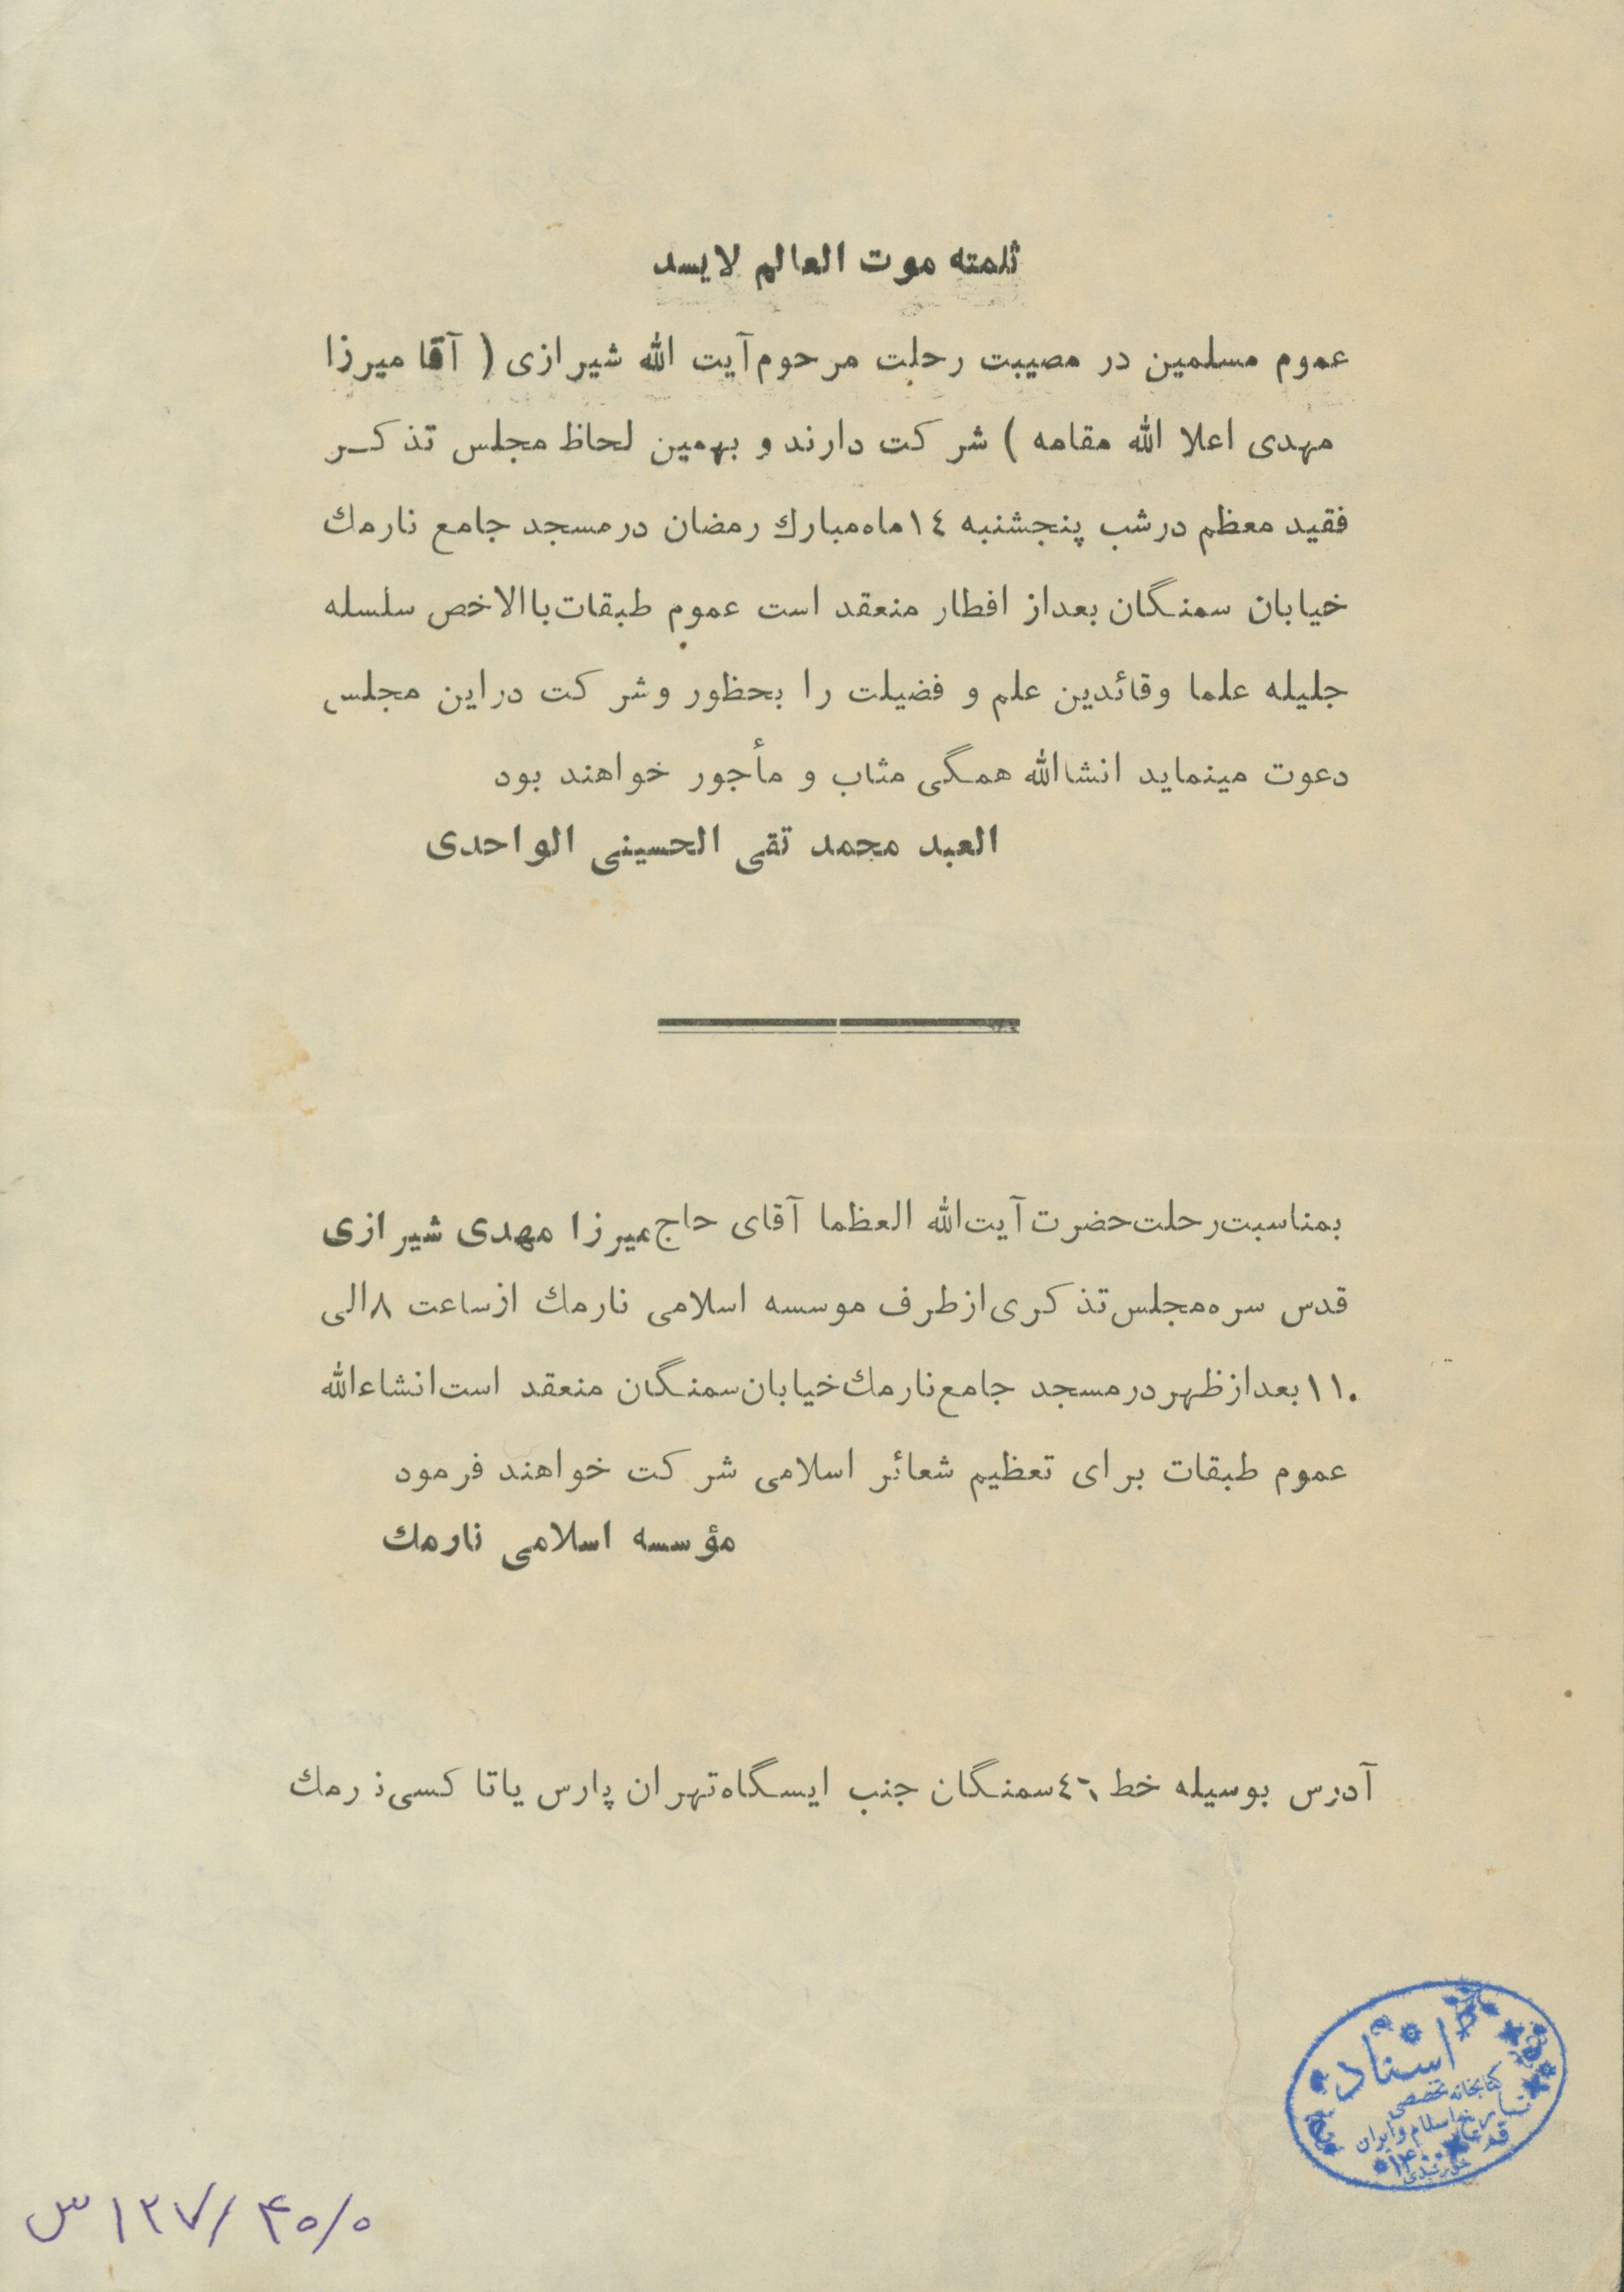 ثلمته موت العالم لایسد
عموم مسلمین در مصیبت رحلت مرحوم آیت الله شیرازی ( آقا میرزا
مهدی اعلا الله مقامه ) شرکت دارند و بهمین لحاظ مجلس تذکـر
فقید معظم درشب پنجشنبه ١٤ ماه مبارك رمضان در مسجد جامع نارمك
خیابان سمنگان بعداز افطار منعقد است عموم طبقات باالاخص سلسله
جلیله علما وقائدین علم و فضیلت را بحظور و شرکت دراین مجلس
دعوت مینماید انشاالله همگی مثاب و مأجور خواهند بود
العبد محمد تقی الحسینی الواحدی
بمناسبت رحلت حضرت آیت الله العظما آقای حاج میرزا مهدی شیرازی
قدس سره مجلس تذکری از طرف موسسه اسلامی نارمك از ساعت ٨ الی
١١٠ بعداز ظهر در مسجد جامع نارمك خیابان سمنگان منعقد است انشاءالله
عموم طبقات برای تعظیم شعائر اسلامی شرکت خواهند فرمود
مؤسسه اسلامی نارمك
آدرس بوسیله خط سمنگان جنب ایستگاه تهران پارس یا تاکسی
اسناد
کتابخانه تخصصی
تاریخ اسلام و ایران
قم
س ١٢٧/۴٥/٥